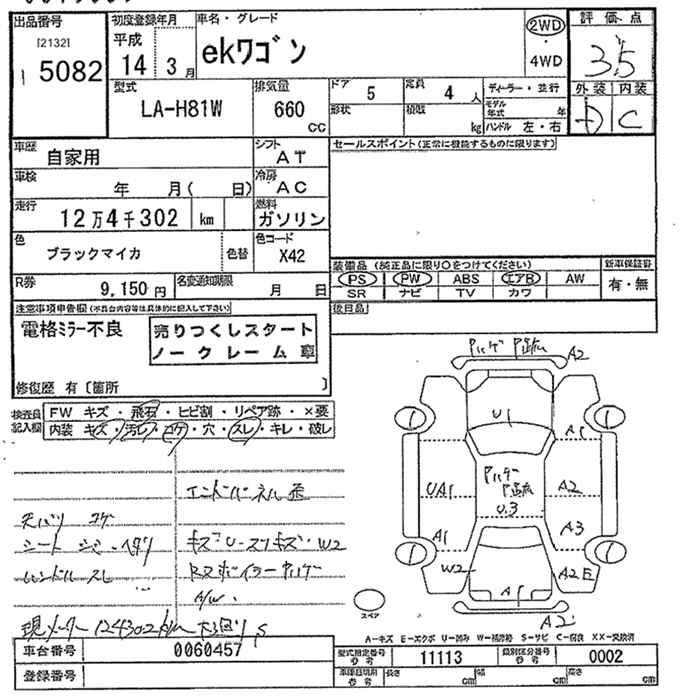 出品番号 初度登録年月 車名・グレード 2WD 評価点
[2132] 平成 ekワゴン ・ 3.5
15082 14 3月 4WD
型式 排気量 ドア 5 定員 4人 ディーラー・並行 外装 内装
LA-H81W 660 CC 形状 積載 kg モデル年式 年 D C
ハンドル 左・右
車歴 自家用 シフト AT セールスポイント(正常に機能するものに限ります)
車検 年 月( 日) 冷房 AC
走行 12万4千302 km 燃料 ガソリン
色 ブラックマイカ 色替 色コード X42
装備品 (純正品に限り○をつけてください) 新車保証書
R券 9,150円 名変通知期限 月 日 PS PW ABS エアB AW 有・無
SR ナビ TV カワ
注意事項申告欄(不具合内容等は具体的に記入して下さい) 後日品
電格ミラー不良 売りつくしスタート
ノークレーム車
修復歴 有〔箇所 〕
検査員記入欄 FW キズ・飛石・ヒビ割・リペア跡・×要
内装 キズ・汚レ・コゲ・穴・スレ・キレ・破レ
天バリ コゲ
ハンドルスレ
A/W
現メーター 124302km
A2
U1
A1
UA1
A2
U3
A1
A3
W2
A2E
A1
A2
スペア
A-キズ E-エクボ U-凹み W-補修跡 S-サビ C-腐食 XX-交換済
車台番号 0060457 型式指定番号 参考 11113 類別区分番号 参考 0002
登録番号 車庫証明用 参考 長さ cm 幅 cm 高さ cm